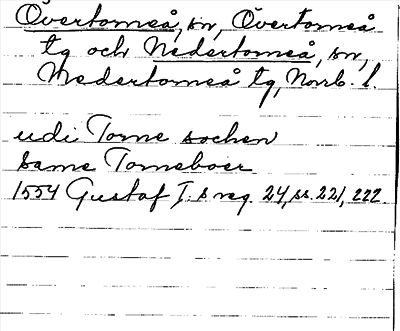 Övertorneå, sn, Övertorneå
tg och Nedertorneå, sn,
Nedertorneå tg, Norrb. l.
udi Torne sochen
same Torneboer
1554 Gustaf I:s reg. 24, ss. 221, 222.